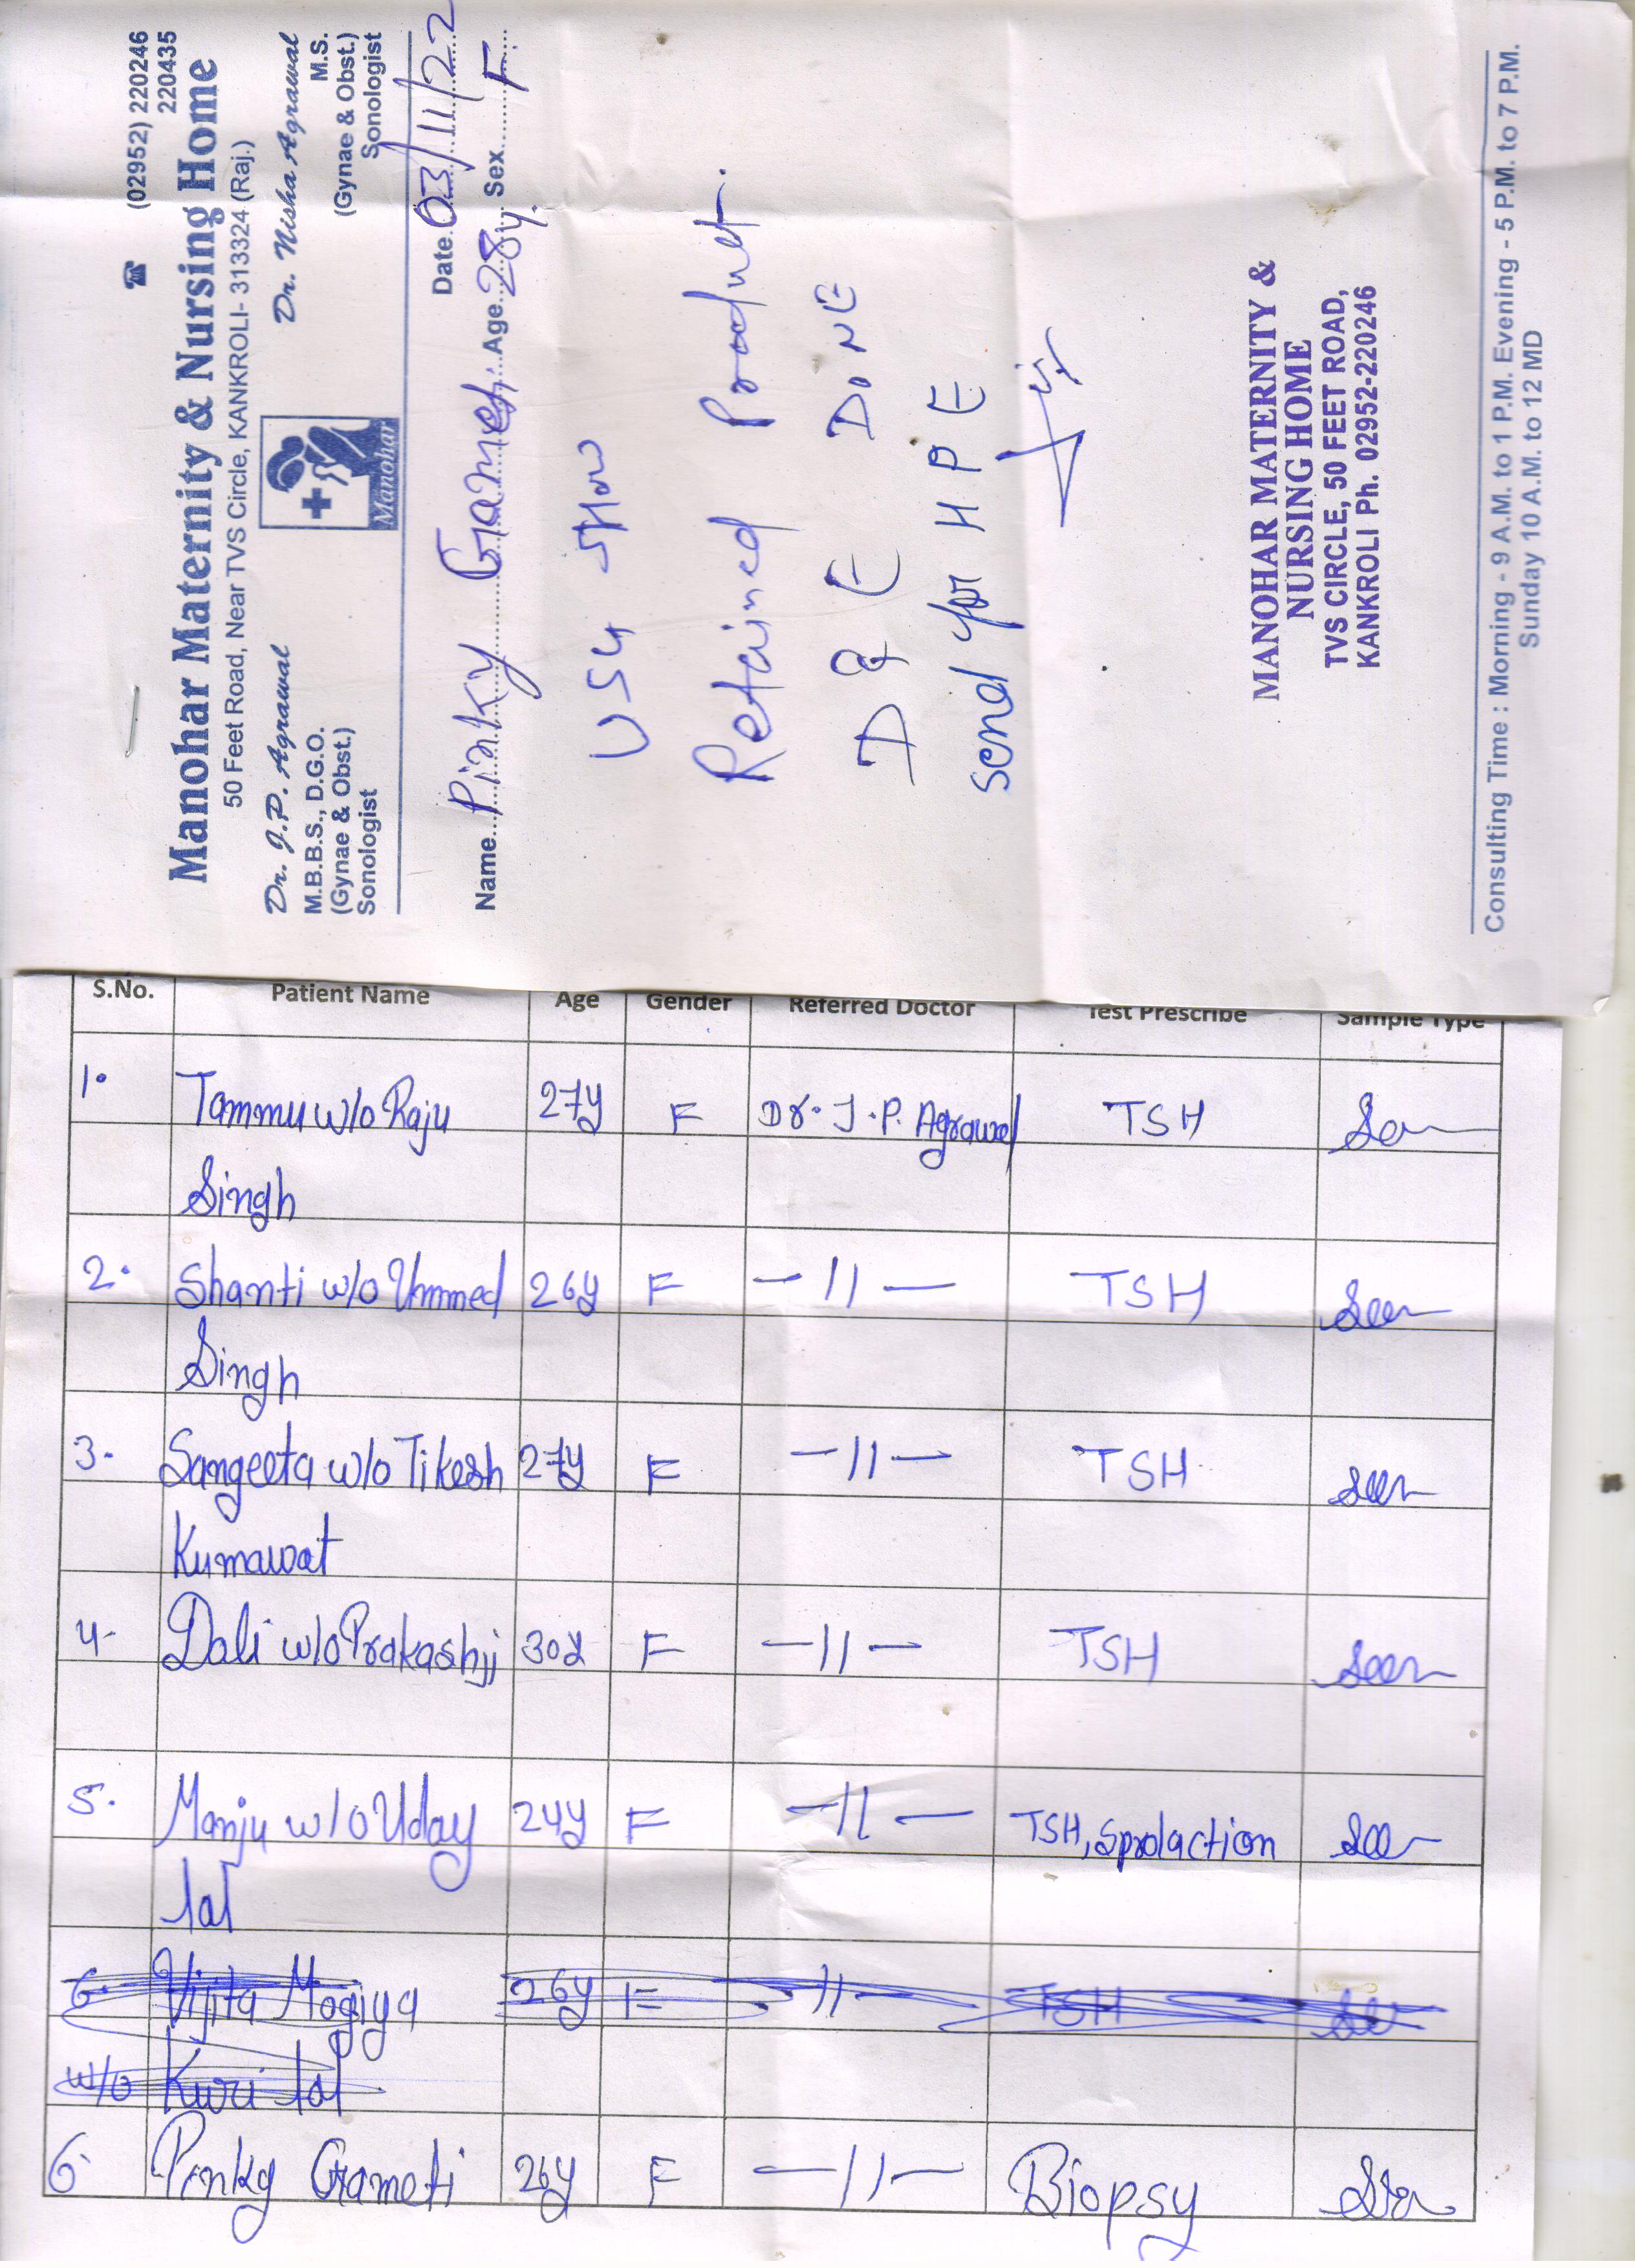 ☎ (02952) 220246
220435
Manohar Maternity & Nursing Home
50 Feet Road, Near TVS Circle, KANKROLI- 313324 (Raj.)
Dr. J.P. Agrawal
M.B.B.S., D.G.O.
(Gynae & Obst.)
Sonologist
Manohar
Dr. Nisha Agrawal
M.S.
(Gynae & Obst.)
Sonologist
Date 03/11/22
Name Pinky Gameti Age 28y. Sex F.
USG Show
Retained Product.
D & E DONE
Send for HPE
MANOHAR MATERNITY &
NURSING HOME
TVS CIRCLE, 50 FEET ROAD,
KANKROLI Ph. 02952-220246
Consulting Time : Morning - 9 A.M. to 1 P.M. Evening - 5 P.M. to 7 P.M.
Sunday 10 A.M. to 12 MD
S.No. Patient Name Age Gender Referred Doctor Test Prescribe Sample Type
1. Tammu w/o Raju 27y F Dr. J.P. Agrawal TSH
Singh
2. Shanti w/o Ummed 26y F -11- TSH
Singh
3. Sangeeta w/o Tikesh 27y F -11- TSH
Kumawat
4. Dali w/o Prakashji 30y F -11- TSH
5. Manju w/o Uday 24y F -11- TSH, Sprolaction
lal
6. Vijita Mogiya 26y F -11- TSH
w/o Kuri lal
6. Pinky Gameti 26y F -11- Biopsy